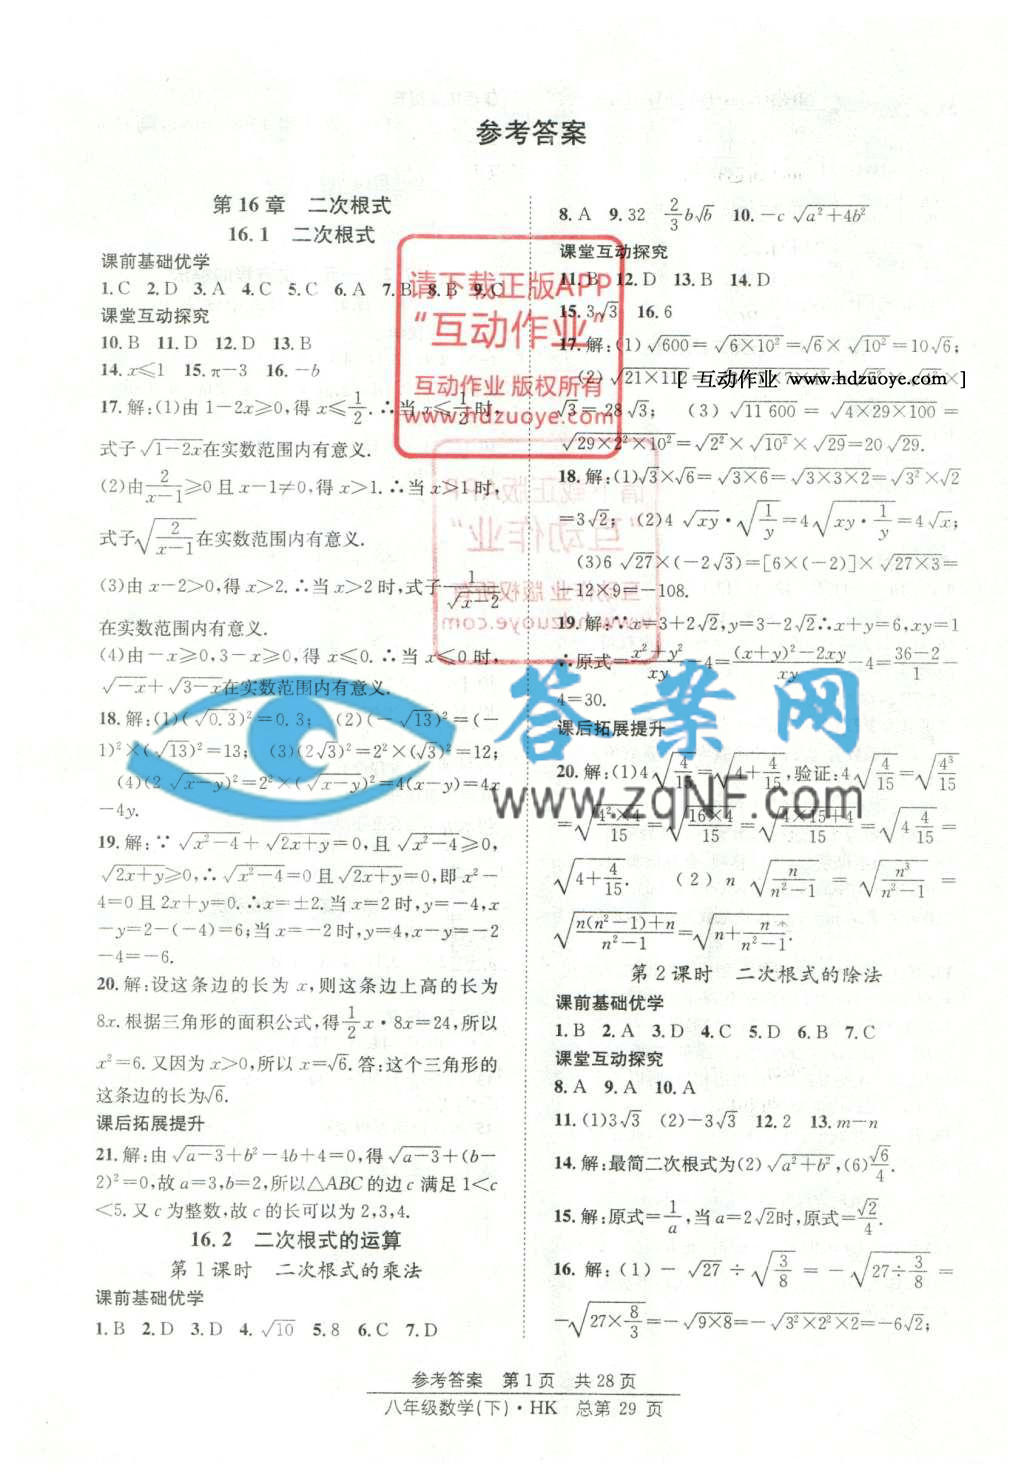 参考答案
第16章 二次根式
16.1 二次根式
课前基础优学
1.C 2.D 3.A 4.C 5.C 6.A 7.B 8.B 9.C
课堂互动探究
10.B 11.D 12.D 13.B
14.x≤1 15.π-3 16.-b
17.解:(1)由1-2x≥0,得x≤1/2.∴当x≤1/2时,
式子√(1-2x)在实数范围内有意义.
(2)由2/(x-1)≥0且x-1≠0,得x>1.∴当x>1时,
式子√(2/(x-1))在实数范围内有意义.
(3)由x-2>0,得x>2.∴当x>2时,式子1/√(x-2)
在实数范围内有意义.
(4)由-x≥0,3-x≥0,得x≤0.∴当x≤0时,
√(-x)+√(3-x)在实数范围内有意义.
18.解:(1)(√0.3)²=0.3; (2)(-√13)²=(-
1)²×(√13)²=13; (3)(2√3)²=2²×(√3)²=12;
(4)(2√(x-y))²=2²×(√(x-y))²=4(x-y)=4x
-4y.
19.解:∵√(x²-4)+√(2x+y)=0,且√(x²-4)≥0,
√(2x+y)≥0,∴√(x²-4)=0且√(2x+y)=0,即x²-
4=0且2x+y=0.∴x=±2.当x=2时,y=-4,x
-y=2-(-4)=6;当x=-2时,y=4,x-y=-2
-4=-6.
20.解:设这条边的长为x,则这条边上高的长为
8x.根据三角形的面积公式,得1/2x·8x=24,所以
x²=6.又因为x>0,所以x=√6.答:这个三角形的
这条边的长为√6.
课后拓展提升
21.解:由√(a-3)+b²-4b+4=0,得√(a-3)+(b-
2)²=0,故a=3,b=2,所以△ABC的边c满足1<c
<5.又c为整数,故c的长可以为2,3,4.
16.2 二次根式的运算
第1课时 二次根式的乘法
课前基础优学
1.B 2.D 3.D 4.√10 5.8 6.C 7.D
8.A 9.32 2/3b√b 10.-c√(a²+4b²)
课堂互动探究
11.B 12.D 13.B 14.D
15.3√3 16.6
17.解:(1)√600=√(6×10²)=√6×√10²=10√6;
(2)√(21×11
√3=28√3; (3)√11 600=√(4×29×100)=
√(29×2²×10²)=√2²×√10²×√29=20√29.
18.解:(1)√3×√6=√(3×6)=√(3×3×2)=√3²×√2
=3√2; (2)4√xy·√(1/y)=4√(xy·1/y)=4√x;
(3)6√27×(-2√3)=[6×(-2)]×√(27×3)=
-12×9=-108.
19.解:∵x=3+2√2,y=3-2√2∴x+y=6,xy=1
∴原式=(x²+y²)/xy-4=((x+y)²-2xy)/xy-4=(36-2)/1-
4=30.
课后拓展提升
20.解:(1)4√(4/15)=√(4+4/15),验证:4√(4/15)=√(4³/15)
=√(4²×4/15)=√(16×4/15)=√((4×15+4)/15)=√(4 4/15)=
√(4+4/15). (2)n√(n/(n²-1))=√(n³/(n²-1))=
√((n(n²-1)+n)/(n²-1))=√(n+n/(n²-1)).
第2课时 二次根式的除法
课前基础优学
1.B 2.A 3.D 4.C 5.D 6.B 7.C
课堂互动探究
8.A 9.A 10.A
11.(1)3√3 (2)-3√3 12.2 13.m-n
14.解:最简二次根式为(2)√(a²+b²),(6)√6/4.
15.解:原式=1/a,当a=2√2时,原式=√2/4.
16.解:(1)-√27÷√(3/8)=-√(27÷3/8)=
-√(27×8/3)=-√(9×8)=-√(3²×2²×2)=-6√2;
参考答案 第1页 共28页
八年级数学(下)·HK 总第 29 页
请下载正版APP
“互动作业”
互动作业 版权所有
www.hdzuoye.com
[ 互动作业 www.hdzuoye.com ]
答案网
www.zqNF.com